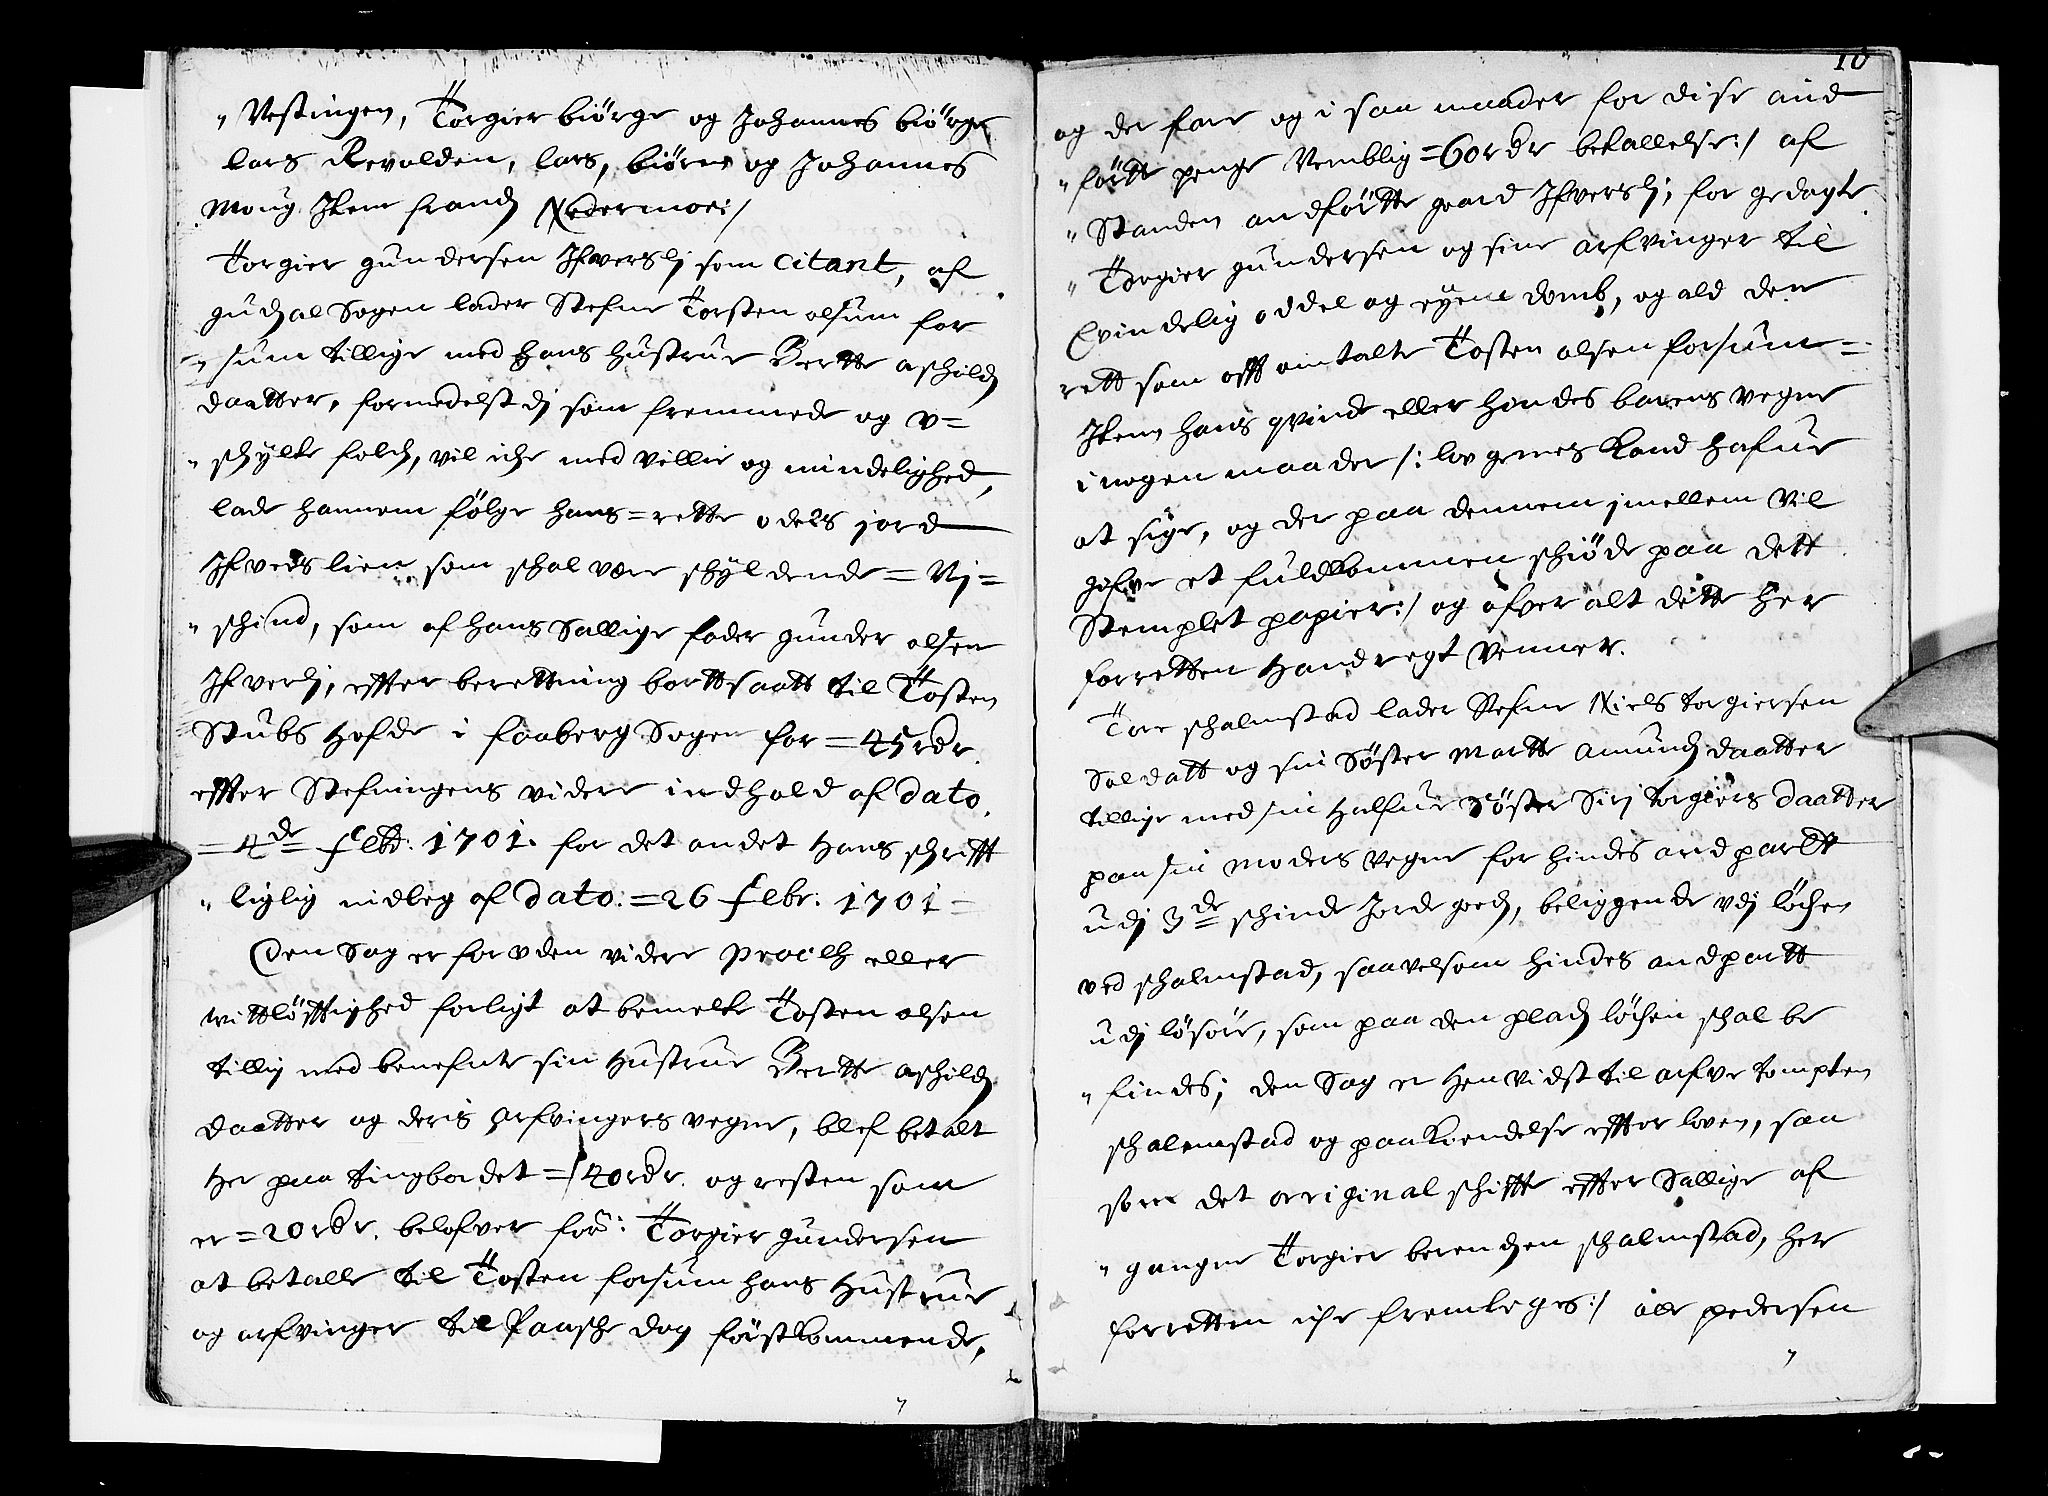 " Vestingen, Torgier biörge og Johannes biörge
lars Revolden, lars, biörn og Johannes
Moug Item frandz Nedermoe:/
Torgier gundersen Ifversli som Citant, af
gudzal Sogen lader Stefne Torsten olsum for
=" sum tillige med hans hustrue Berette aschildz
daatter, formedelst dj som fremmede og v=
" schylte folch, vil iche med villie og mindelighed,
lade hannem følge hans=rette odels jord
Ifvedslien som schal være schyldende = Vj =
" schind, som af hans Sallige fader gunder olsen
Ifversli, effter beretning bortsaatt til Tosten
Stubs Hofde i faaberg Sogen for = 45 rdr.
effter Stefningens videre indhold af dato.
= 4de = Febr: 1701. for det andet hans schrifft
" liglig indleg af dato: = 26 Febr: 1701 =
Den Sag er foruden videre Procels eller
vittløfftighed forligt at bemelte Tosten olsen
tillig med benefnte sin Hustrue Berette aschildz
daatter og deris arfvingers vegne, blef betalt
her paa tingbordet = 40 rdr. og resten som
er = 20 rdr. belofver for: Torgier gundersen
at betalle til Tosten forsum hans Hustrue
og arfvinger til Paasche dag førstkommende,
10
og der fore og i saa maader for disse and
" førtte penge Nemblig = 60 rdr betallelse:/ af
" Standen andførtte gaard Ifversli, for gedagte
" Torgier gundersen og sine arfvinger til
Evindelig oddel og eyendomb, og ald den
rett som offt omtalte Tosten olsen forsum =
Item hans qvinde eller hendes barens vegne
i nogen maader /: lovgemes kand hafue
at sige, og der paa dennem jmellem vil
gifve et fuldkommen schiøde paa dett
Stemplet papier:/ og ofver alt dette her
forretten Handregt Venner.
Tore schalmstad lader Stefne Niels torgiersen
Soldatt og sin Søster Marte amundz daatter
tillige med sin Halfue Søster Siri torgiers daatter
paa sin Moders vegne for hindes and partt
udj 3de schinds Jordegodz, beliggende vdj løchen
ved schalmstad, saavelsom hindes andpartt
udj løsøre, som paa den pladz løchen schal be
" findes; den Sag er Henvidst til arfve tompten
schalmstad og paakiendelse effter loven, saa
som det original schiffte effter Sallige af
" gangne Torgier berendzen schalmstad, her
forretten iche fremleges:/ Ole pedersen